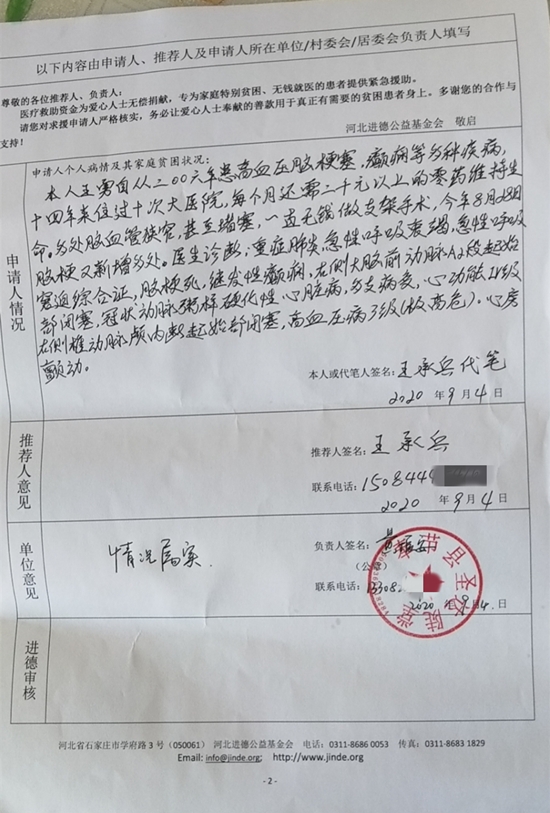 以下内容由申请人、推荐人及申请人所在单位/村委会/居委会负责人填写
尊敬的各位推荐人、负责人:
医疗救助资金为爱心人士无偿捐献,专为家庭特别贫困、无钱就医的患者提供紧急援助。
请您对求援申请人严格核实,务必让爱心人士奉献的善款用于真正有需要的贫困患者身上。多谢您的合作与
支持!
河北进德公益基金会 敬启
申请人情况
申请人个人病情及其家庭贫困状况:
本人王勇自从二00六年患高血压脑梗塞,癫痫等多种疾病,
十四年来住过十次大医院,每个月还需二千元以上的零药维持生
命。多处脑血管狭窄,甚至堵塞,一直无钱做支架手术,今年8月28日
脑梗又新增多处。医生诊断:重症肺炎,急性呼吸衰竭,急性呼吸
窘迫综合证,脑梗死,继发性癫痫,左侧大脑前动脉A2段起始
部闭塞,冠状动脉粥样硬化性心脏病,多支病变,心功能IV级
左侧椎动脉颅内段起始部闭塞,高血压病3级(极高危)。心房
颤动。
本人或代笔人签名:王承兵代笔
2020 年 9 月 4 日
推荐人意见
推荐人签名:王承兵
联系电话:1508444
2020 年 9 月 4 日
单位意见
情况属实.
负责人签名:
(公章)
联系电话:13308
2020 年 9 月 4 日
县圣
进德审核
河北省石家庄市学府路 3 号(050061) 河北进德公益基金会 电话:0311-8686 0053 传真:0311-8683 1829
Email: info@jinde.org; http://www.jinde.org
- 2 -